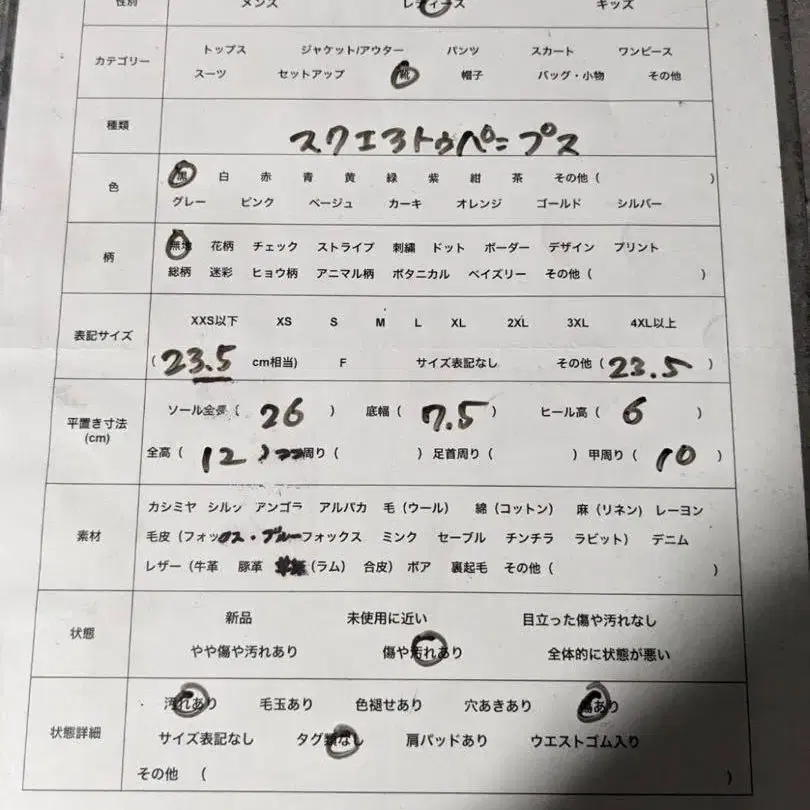 性別 メンズ レディース キッズ
カテゴリー トップス ジャケット/アウター パンツ スカート ワンピース
スーツ セットアップ 靴 帽子 バッグ・小物 その他
種類 スクエアトゥパンプス
色 黒 白 赤 青 黄 緑 紫 紺 茶 その他 ( )
グレー ピンク ベージュ カーキ オレンジ ゴールド シルバー
柄 無地 花柄 チェック ストライプ 刺繍 ドット ボーダー デザイン プリント
総柄 迷彩 ヒョウ柄 アニマル柄 ボタニカル ペイズリー その他 ( )
表記サイズ XXS以下 XS S M L XL 2XL 3XL 4XL以上
(23.5 cm相当) F サイズ表記なし その他 (23.5)
平置き寸法 (cm) ソール全長 ( 26 ) 底幅 ( 7.5 ) ヒール高 ( 6 )
全高 ( 12 ) 周り ( ) 足首周り ( ) 甲周り ( 10 )
素材 カシミヤ シルク アンゴラ アルパカ 毛 (ウール) 綿 (コットン) 麻 (リネン) レーヨン
毛皮 (フォックス・ブルーフォックス ミンク セーブル チンチラ ラビット) デニム
レザー (牛革 豚革 (ラム) 合皮) ボア 裏起毛 その他 ( )
状態 新品 未使用に近い 目立った傷や汚れなし
やや傷や汚れあり 傷や汚れあり 全体的に状態が悪い
状態詳細 汚れあり 毛玉あり 色褪せあり 穴あきあり 傷あり
サイズ表記なし タグ類なし 肩パッドあり ウエストゴム入り
その他 ( )